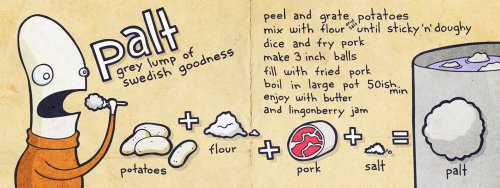 palt
grey lump of
swedish goodness
peel and grate potatoes
mix with flour and salt until sticky 'n' doughy
dice and fry pork
make 3 inch balls
fill with fried pork
boil in large pot 50ish min
enjoy with butter
and lingonberry jam
potatoes
+
flour
+
pork
+
salt
=
palt